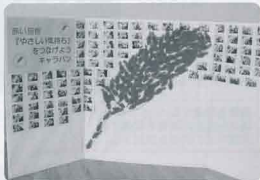 赤い羽根
『やさしい気持ち』
をつなげよう
キャラバン